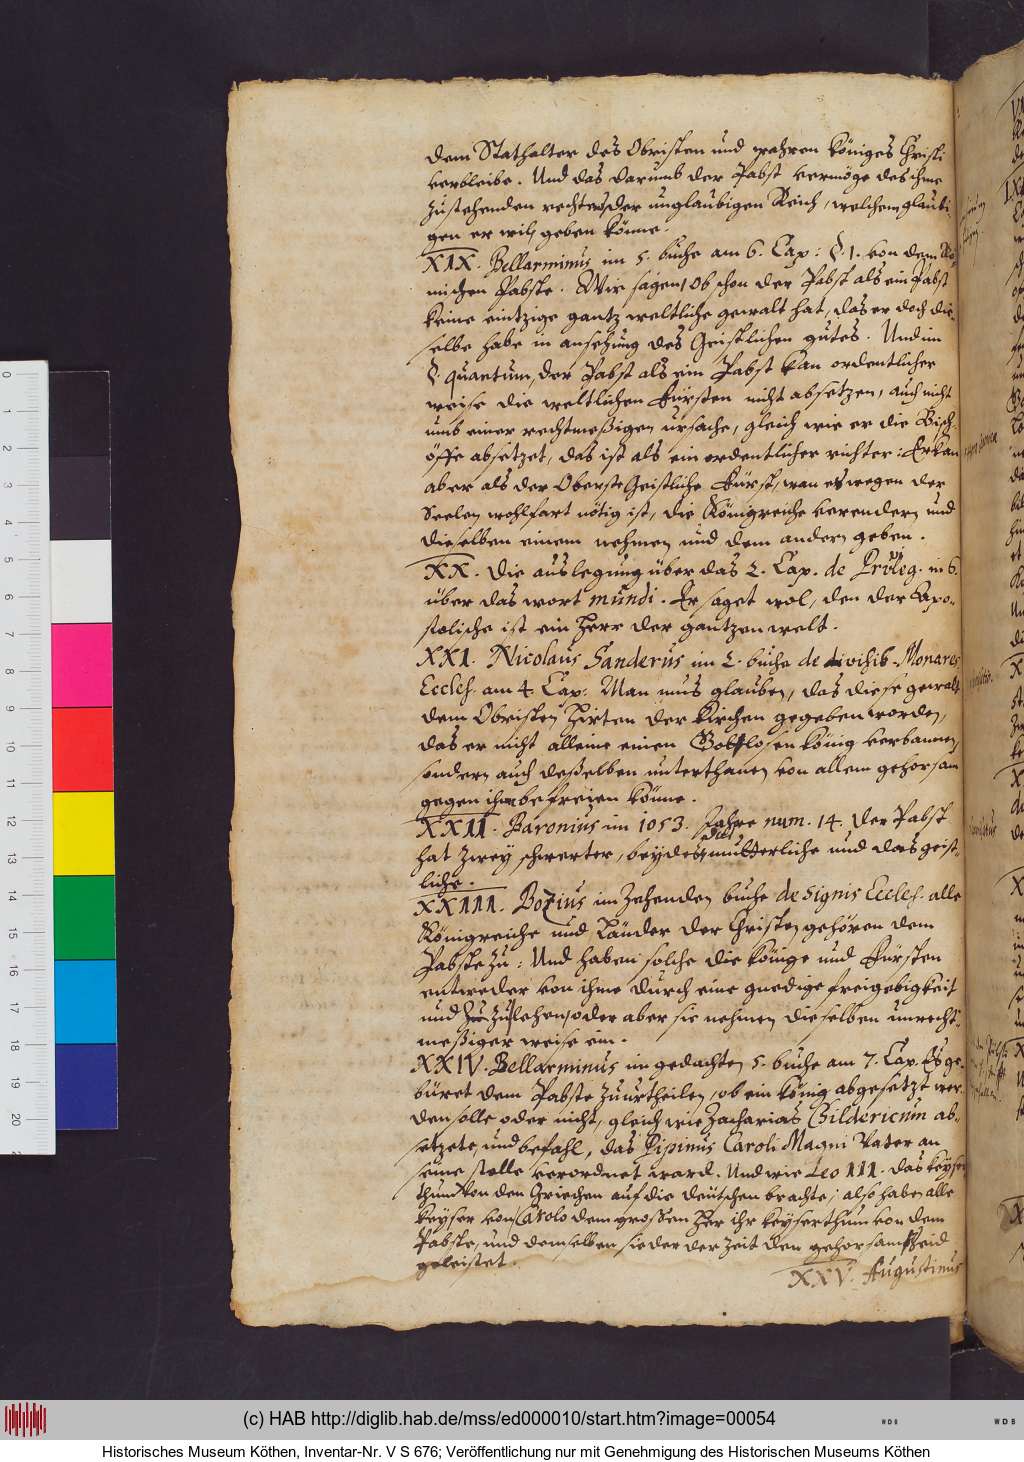 dem Stathalter des Obristen und wahren Königes Christi
verbleibe. Und das darumb der Pabst vermöge des ihme
zustehenden rechtes der unglaubigen Reich, welchem glaubi-
gen er wil, geben könne.
XIX. Bellarminus im 5. buche am 6. Cap: §. 1. von dem Rö-
mischen Pabste. Wir sagen, Ob schon der Pabst als ein Pabst
keine eintzige gantz weltliche gewalt hat, das er doch die-
selbe habe in ansehung des Geistlichen gutes. Und im
§. quantum, der Pabst als ein Pabst kan ordentlicher
weise die weltlichen Fürsten nicht absetzen, auch nicht
umb einer rechtmeßigen ursache, gleich wie er die Bisch-
öffe absetzet, das ist als ein ordentlicher richter: Er kan
aber als der Oberste Geistliche Fürst, wan es wegen der
Seelen wohlfart nötig ist, die Königreiche verendern und
dieselben einem nehmen und dem andern geben.
XX. Die auslegung über das 2. Cap. de Privileg. in 6.
über das wort mundi. Er saget wol, den der Apo-
stoliche ist ein Herr der gantzen welt.
XXI. Nicolaus Sanderus im 2. buche de visib. Monarch
Eccles. am 4. Cap: Man mus glauben, das diese gewalt
dem Obristen Hirten der Kirchen gegeben worden,
das er nicht alleine einen Gottlosen könig verbannen,
sondern auch deßelben unterthanen von allem gehorsam
gegen ihm befreien könne.
XXII. Baronius im 1053. Jahre num. 14. Der Pabst
hat zwey schwerter, beydes, und das geist-
liche.
XXIII. Bozius im Zehenden buche de signis Eccles. alle
Königreiche und Länder der Christen gehören dem
Pabste zu: Und haben solche die könige und Fürsten
entweder von ihme durch eine gnedige freigebigkeit
und zu lehen, oder aber sie nehmen dieselben unrecht-
meßiger weise ein.
XXIV. Bellarminus im gedachten 5. buche am 7. Cap. Es ge-
büret dem Pabste zu urtheilen, ob ein könig abgesetzt wer-
den solle oder nicht, gleich wie Zacharias Childericum ab-
setzete, und befahl, das Pipinus Caroli Magni Vater an
seine stelle verordnet ward. Und wie Leo III. das keyser
thum von den Griechen auf die deutschen brachte; also haben alle
keyser von Carolo dem grossen her ihr keyserthum von dem
Pabste, und demselben sieder der zeit den gehorsams Eid
geleistet.
XXV. Augustinus
(c) HAB http://diglib.hab.de/mss/ed000010/start.htm?image=00054
Historisches Museum Köthen, Inventar-Nr. V S 676; Veröffentlichung nur mit Genehmigung des Historischen Museums Köthen